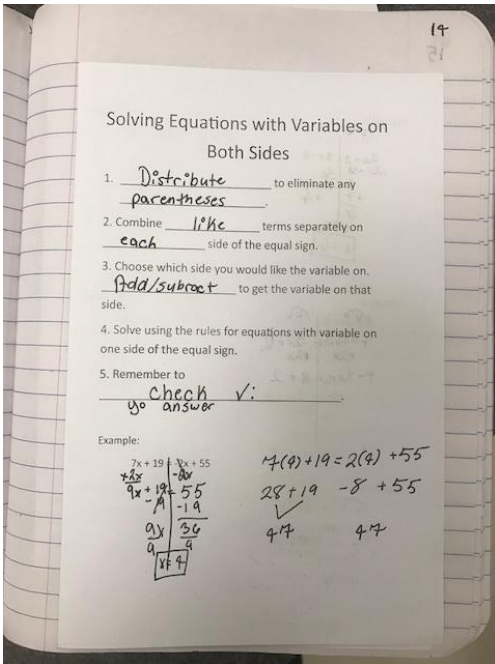 14
Solving Equations with Variables on
Both Sides
1. Distribute to eliminate any
parentheses.
2. Combine like terms separately on
each side of the equal sign.
3. Choose which side you would like the variable on.
Add/subract to get the variable on that
side.
4. Solve using the rules for equations with variable on
one side of the equal sign.
5. Remember to
check √:
yo answer
Example:
7x + 19 = -2x + 55
+2x
9x + 19 = 55
-19
9x 36
9 9
x=4
7(4)+19=2(4) +55
28+19 -8 +55
47 47